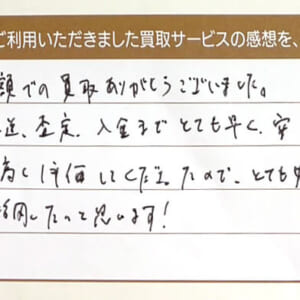 ご利用いただきました買取サービスの感想を、
額での買取ありがとうございました。
送、査定、入金までとても早く、安
高く評価してくださったので、とても
利用したいって思います!